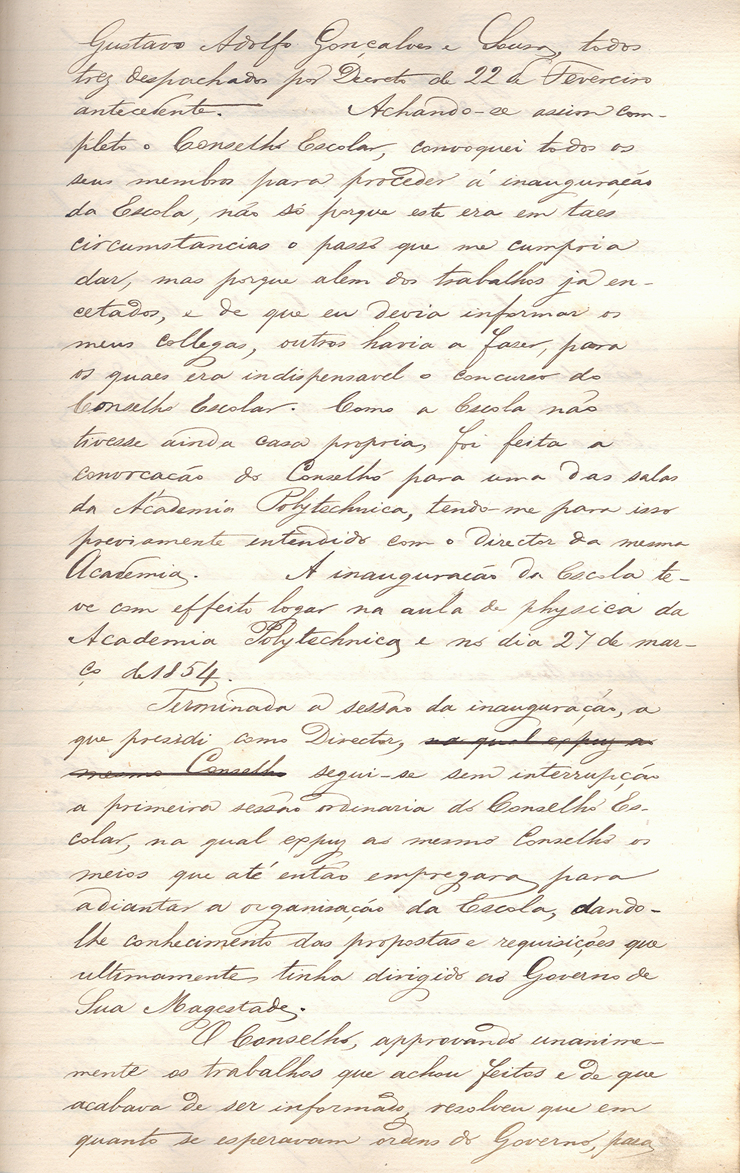 Gustavo Adolfo Gonçalves e Sousa, todos
trez despachados por Decreto de 22 de Fevereiro
antecedente. Achando-se assim com-
pleto o Conselho Escolar, convoquei todos os
seus membros para proceder á inauguração
da Escola, não só porque este era em taes
circumstancias o passo que me cumpria
dar, mas porque alem dos trabalhos já en-
cetados, e de que eu devia informar os
meus collegas, outros havia a fazer, para
os quaes era indispensavel o concurso do
Conselho Escolar. Como a Escola não
tivesse ainda casa propria, foi feita a
convocação do Conselho para uma das salas
da Academia Polytechnica, tendo-me para isso
previamente entendido com o Director da mesma
Academia. A inauguração da Escola te-
ve com effeito logar na aula de physica da
Academia Polytechnica, e no dia 27 de mar-
ço de 1854.
Terminada a sessão da inauguração, a
que presidi como Director, na qual expuz ao
mesmo Conselho segui-se sem interrupção
a primeira sessão ordinaria do Conselho Es-
colar, na qual expuz ao mesmo Conselho os
meios que até então empregara para
adiantar a organisação da Escola, dando-
lhe conhecimento das propostas e requisições que
ultimamente tinha dirigido ao Governo de
Sua Magestade.
O Conselho, approvando unanime-
mente os trabalhos que achou feitos e de que
acabava de ser informado, resolveu que em
quanto se esperavam ordens do Governo, para